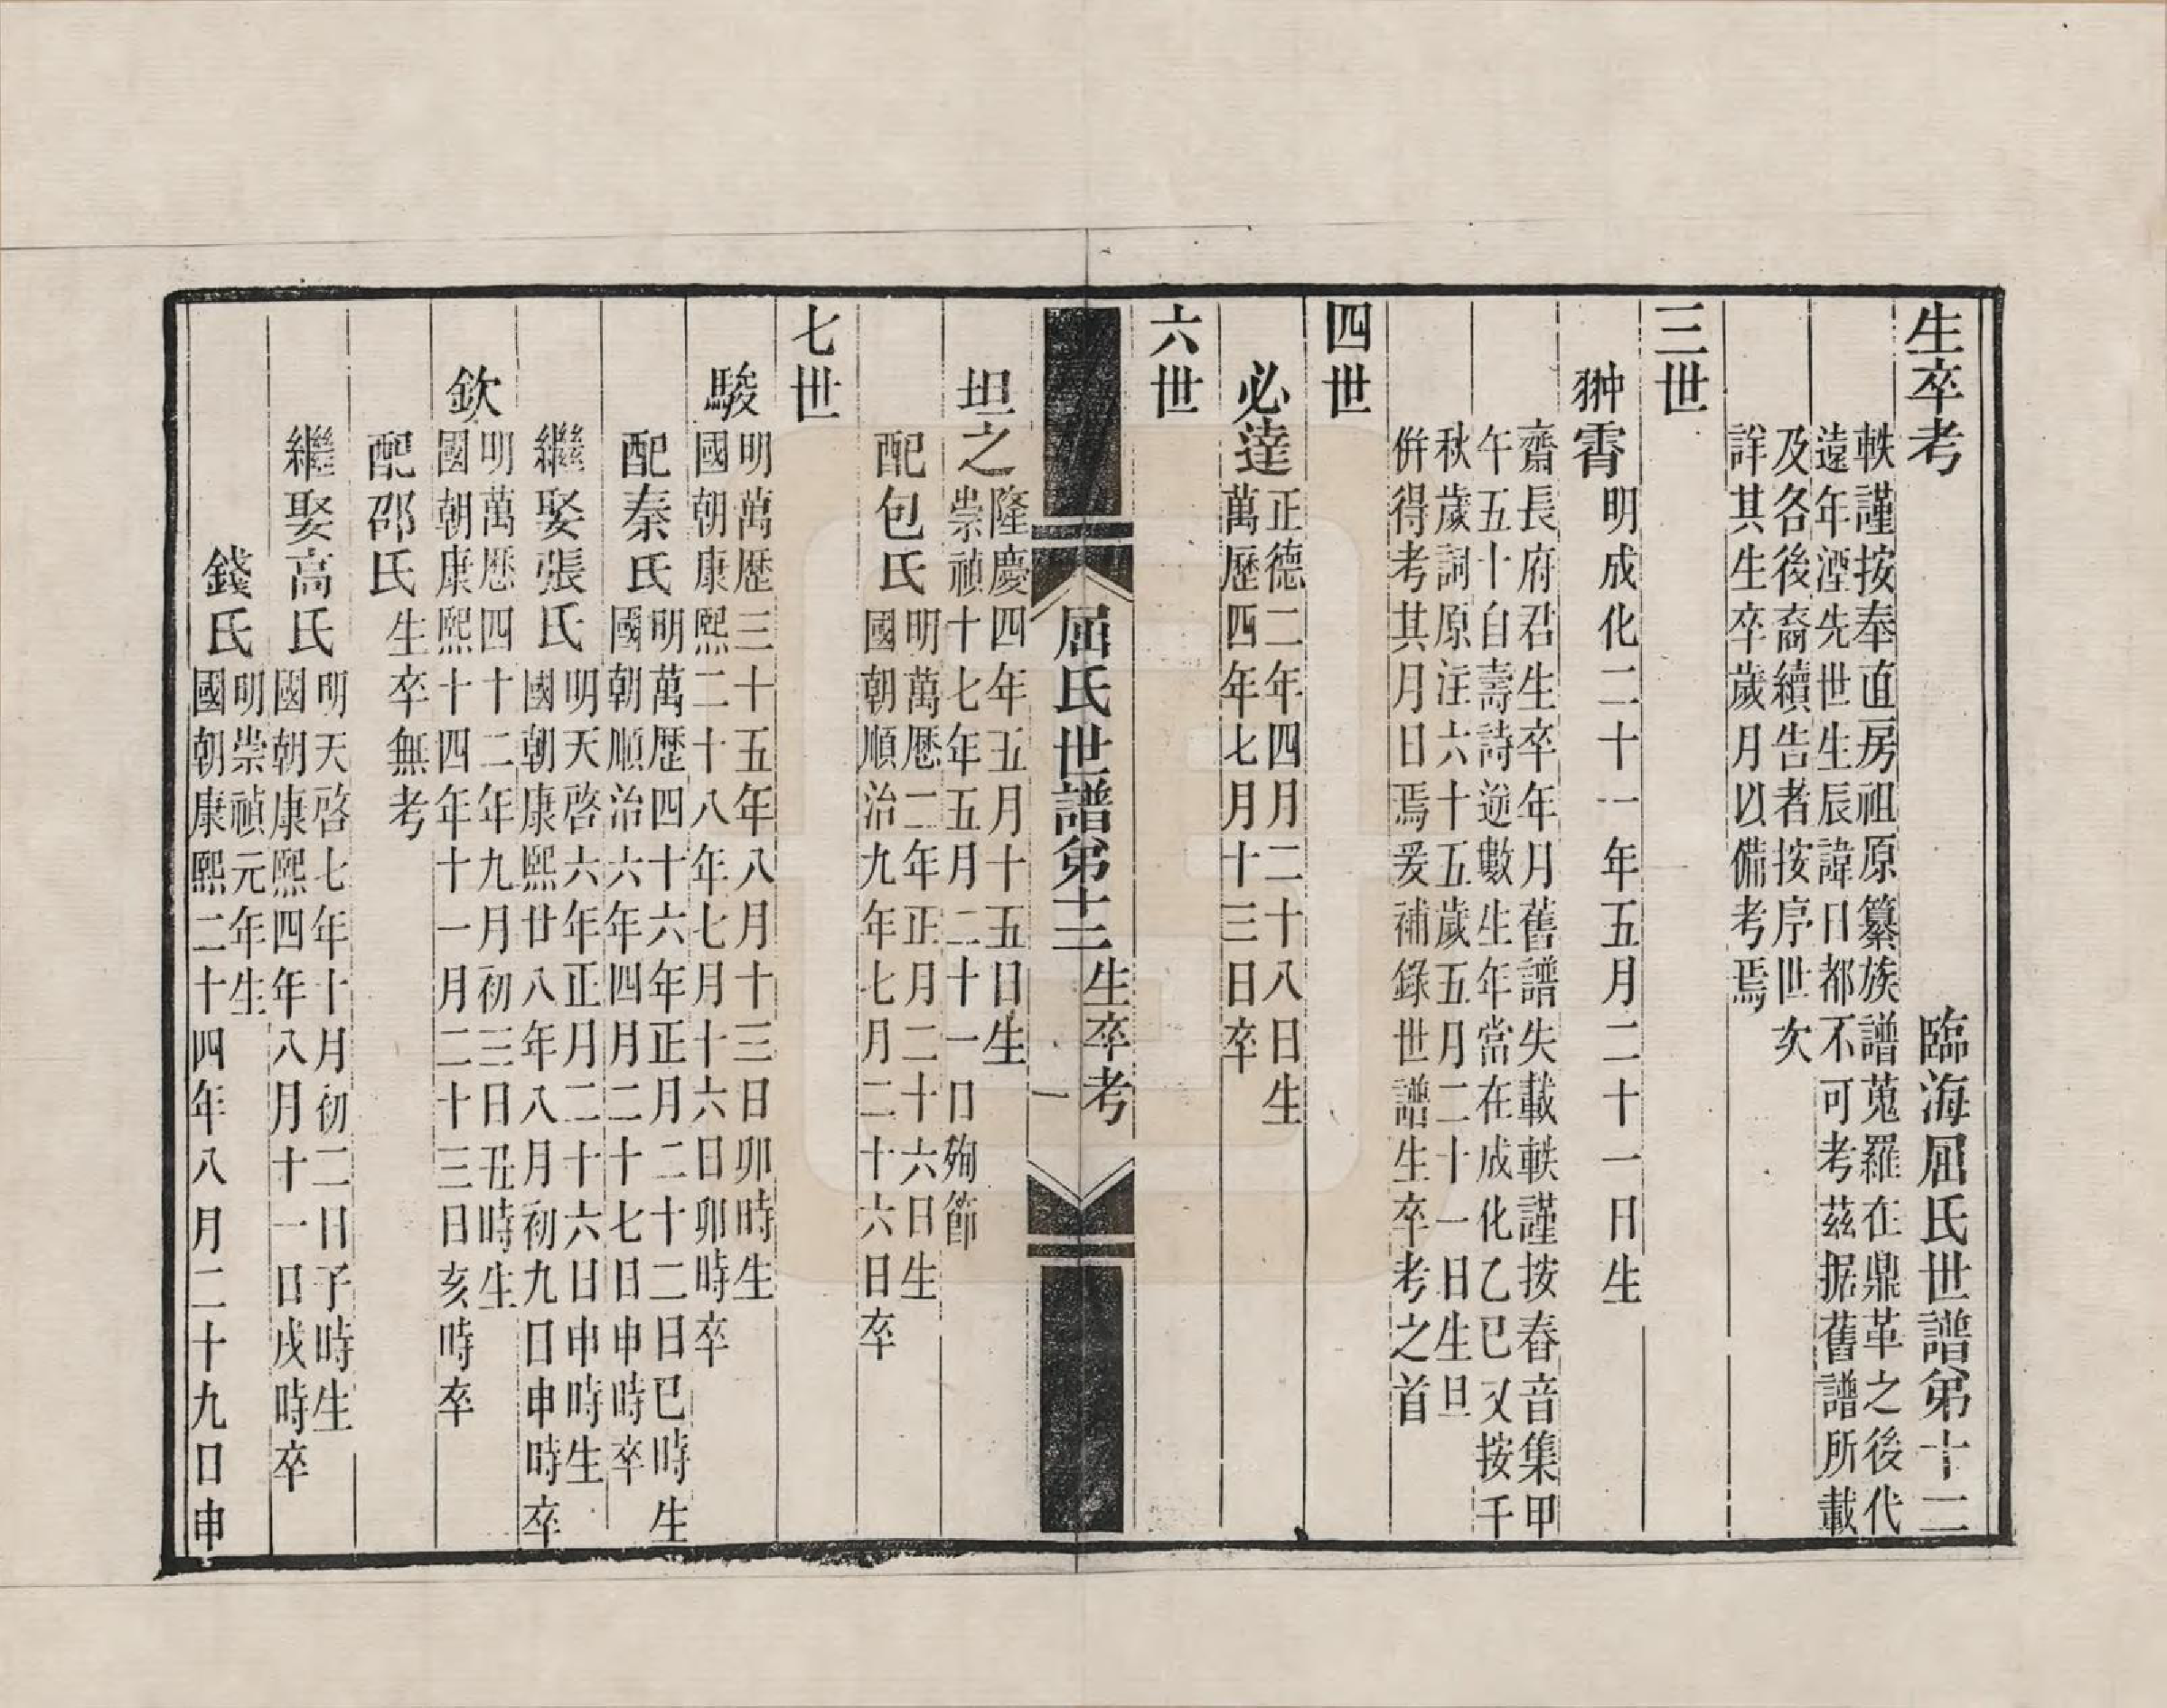 生卒考　臨海屈氏世譜弟十二
軼謹按奉直房祖原纂族譜蒐羅在鼎革之後代
遠年湮先世生辰諱日都不可考茲据舊譜所載
及各後裔續告者按序世次
詳其生卒歲月以備考焉
三世
翀霄明成化二十一年五月二十一日生
齋長府君生卒年月舊譜失載軼謹按春音集甲
午五十自壽詩逆數生年當在成化乙巳又按千
秋歲詞原注六十五歲五月二十一日生旦
併得考其月日焉爰補錄世譜生卒考之首
四世
必達正德二年四月二十八日生
萬歷四年七月十三日卒
六世
屈氏世譜弟十二　生卒考　一
坦之隆慶四年五月十五日生
崇禎十七年五月二十一日殉節
配包氏明萬歷二年正月二十六日生
國朝順治九年七月二十六日卒
七世
駿明萬歷三十五年八月十三日卯時生
國朝康熙二十八年七月十六日卯時卒
配秦氏明萬歷四十六年正月二十二日巳時生
國朝順治六年四月二十七日申時卒
繼娶張氏明天啓六年正月二十六日申時生
國朝康熙廿八年八月初九日申時卒
欽明萬歷四十二年九月初三日丑時生
國朝康熙十四年十一月二十三日亥時卒
配邵氏生卒無考
繼娶高氏明天啓七年十月初二日子時生
國朝康熙四年八月十一日戌時卒
錢氏明崇禎元年生
國朝康熙二十四年八月二十九日申